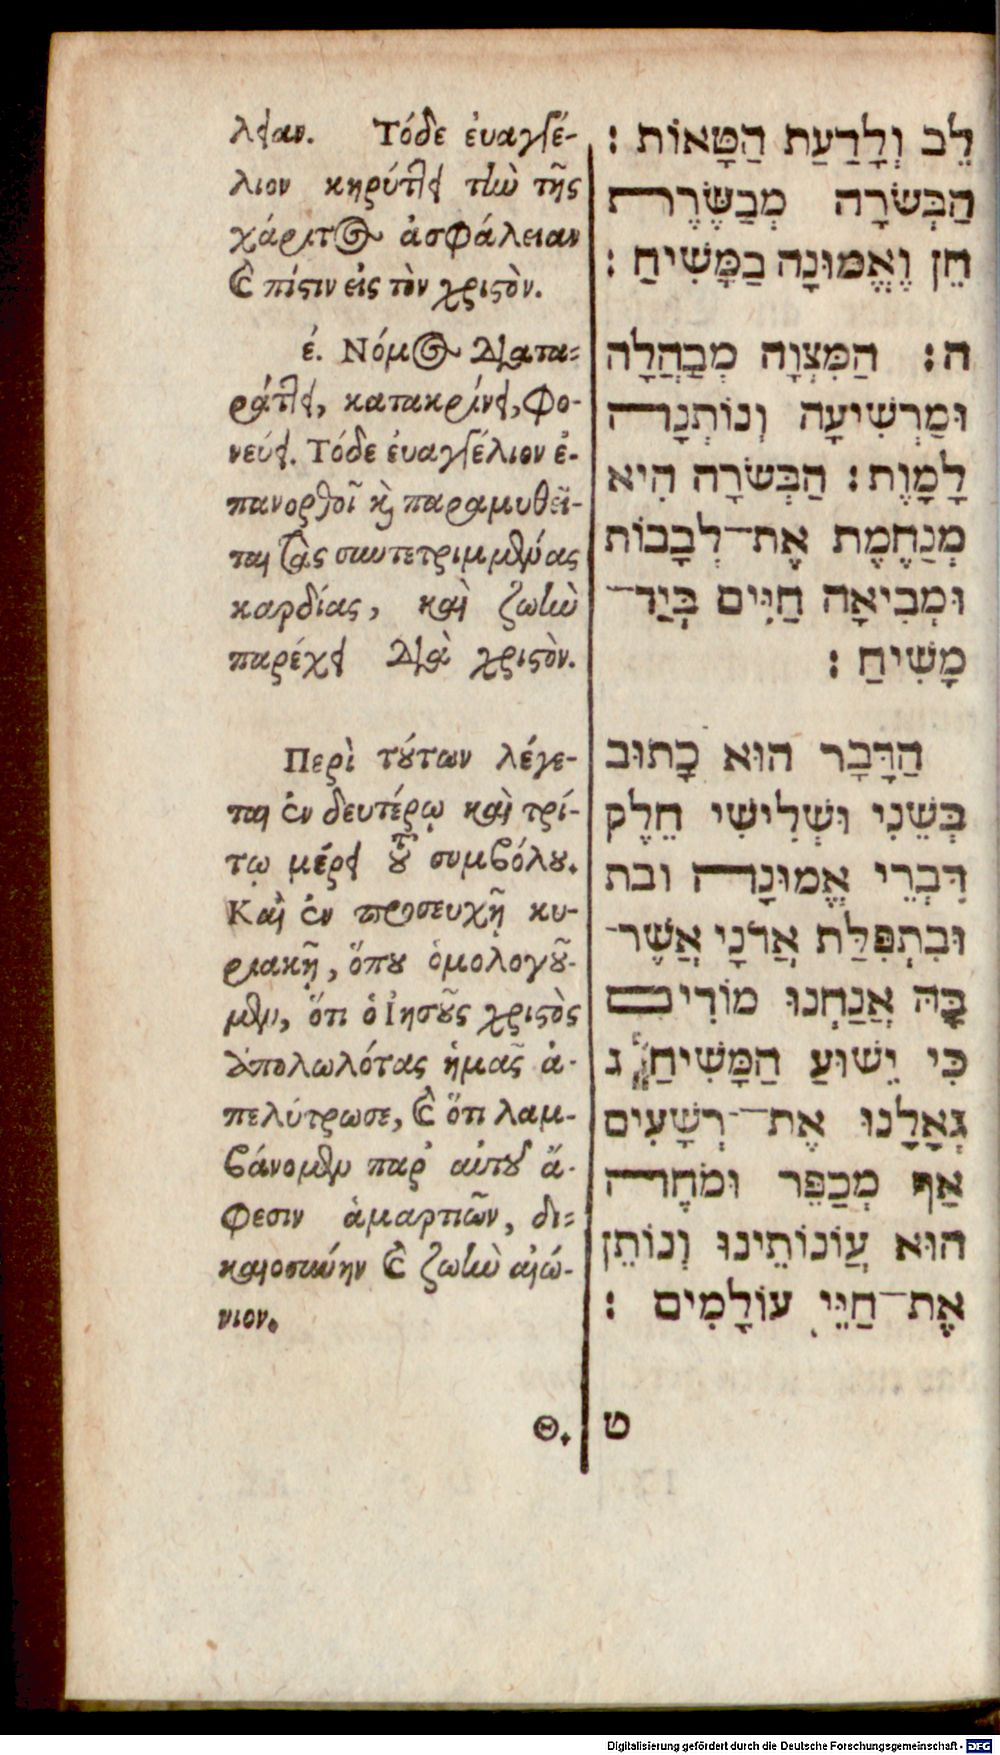 λειαν. Τόδε ἐυαγγέ-
λιον κηρύττει τὴν τῆς
χάριτος ἀσφάλειαν
καὶ πίστιν εἰς τὸν χριστὸν.
έ. Νόμος διατα-
ράττει, κατακρίνει, φο-
νεύει. Τόδε ἐυαγγέλιον ἐ-
πανορθοῖ καὶ παραμυθεῖ-
ται τὰς συντετριμμένας
καρδίας, καὶ ζωὴν
παρέχει διὰ χριστὸν.
Περὶ τούτων λέγε-
ται ἐν δευτέρῳ καὶ τρί-
τῳ μέρει τοῦ συμβόλου.
Καὶ ἐν προσευχῇ κυ-
ριακῇ, ὅπου ὁμολογοῦ-
μεν, ὅτι ὁ Ἰησοῦς χριστὸς
ἀπολωλότας ἡμᾶς ἀ-
πελύτρωσε, καὶ ὅτι λαμ-
βάνομεν παρ' αὐτοῦ ἄ-
φεσιν ἁμαρτιῶν, δι-
καιοσύνην καὶ ζωὴν αἰώ-
νιον.
Θ.
לֵב וְלָדַעַת הַטָּאוֹת :
הַבְּשׂרָה מְבַשֶּׂרֶת
חֵן וֶאֱמוּנָה בַמָּשִׁיחַ :
ה: הַמִּצְוָה מְבַהֲלָה
וּמַרְשִׁיעָה וְנוֹתְנָה
לָמָוֶת : הַבְּשׂרָה הִיא
מְנַחֶמֶת אֶת־לְבָבוֹת
וּמְבִיאָה חַיִּים בְּיַד־
מָשִׁיחַ :
הַדָּבָר הוּא כָתוּב
בְּשֵׁנִי וּשְׁלִישִׁי חֵלֶק
דִּבְרֵי אֱמוּנָה ובת
וּבִתְפִּלַּת אֲדֹנָי אֲשֶׁר־
בָּהּ אֲנַחְנוּ מוֹדִים
כִּי יֵשׁוּעַ הַמָּשִׁיחַ ג
גְּאָלָנוּ אֶת־רְשָׁעִים
אַף מְכַפֵּר וּמֹחֶה
הוּא עֲוֹנוֹתֵינוּ וְנוֹתֵן
אֶת־חַיֵּי עוֹלָמִים :
ט
Digitalisierung gefördert durch die Deutsche Forschungsgemeinschaft - DFG